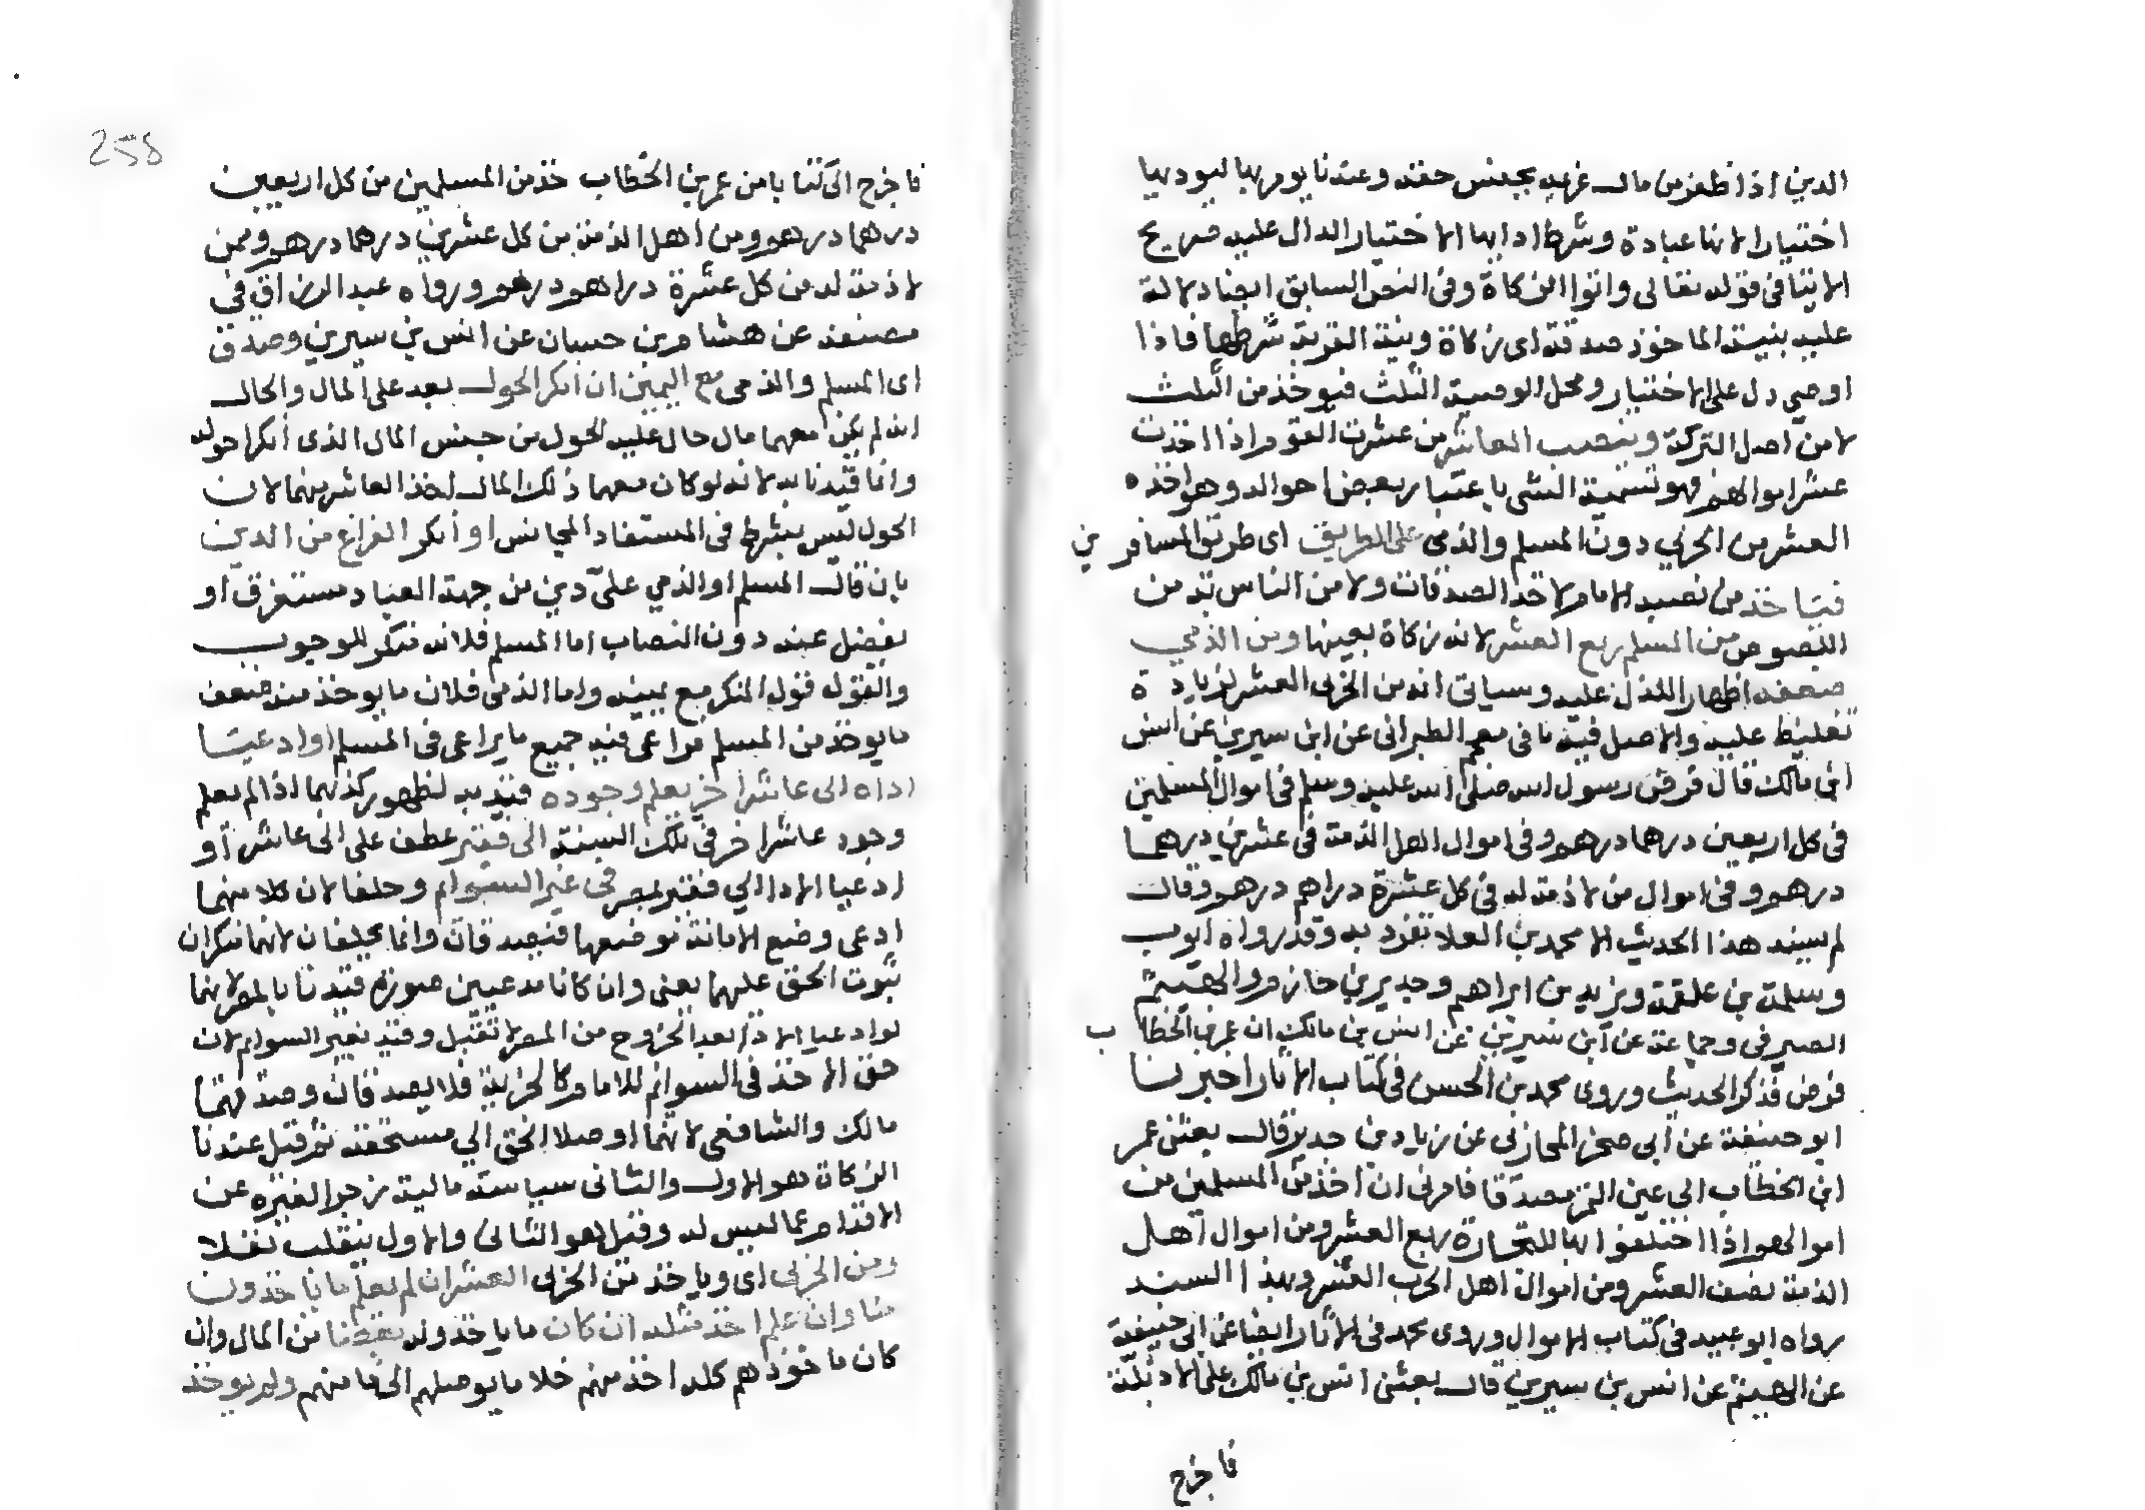 الدين اذا ظفر من مال غريمه بجنس حقه وعندنا يومر بها ليوديها
اختيارا لانها عبادة وشرط ادايها الاختيار الدال عليه صريح
الايتا في قوله تعالى واتوا الزكاة وفي النص السابق ايضا دلالة
عليه بنية الماخوذ صدقة اى زكاة ونية القربة شرطها فاذا
اوصى دل على الاختيار ومحل الوصية الثلث فيوخذ من الثلث
لا من اصل التركة وينصب العاشر من عشرت القوم اذا اخذت
عشر اموالهم فهو تسمية الشى باعتبار بعض احواله وهو اخذه
العشر من الحربي دون المسلم والذمى على الطريق اى طريق المسافرين
فياخذ من نصبه الامام لاخذ الصدقات ولا من الناس به من
اللصوص من المسلم ربع العشر لانه زكاة بعينها ومن الذمي
ضعفه اظهارا للذل عليه وسياتى انه من الحربى العشر لزيادة
تغليظ عليه والاصل فيه ما فى معجم الطبرانى عن ابن سيرين عن انس
ابن مالك قال فرض رسول الله صلى الله عليه وسلم فى اموال المسلمين
فى كل اربعين درهما درهم وفى اموال اهل الذمة فى عشرين درهما
درهم وفى اموال من لا ذمة له فى كل عشرة دراهم درهم وقال
لم يسند هذا الحديث الا محمد بن العلا تفرد به وقد رواه ايوب
وسلمة بن علقمة ويزيد بن ابراهم وجرير بن حازم والهيثم
الصيرفى وجماعة عن ابن سيرين عن انس بن مالك ان عمر بن الخطاب
فرض فذكر الحديث وروى محمد بن الحسن فى كتاب الاثار اخبرنا
ابو حنيفة عن ابى صخر المحاربى عن زياد بن حدير قال بعثنى عمر
ابن الخطاب الى عين التمر مصدقا فامرنى ان اخذ من المسلمين من
اموالهم اذا اختلفوا بها للتجارة ربع العشر ومن اموال اهل
الذمة نصف العشر ومن اموال اهل الحرب العشر وبهذا السند
رواه ابو عبيد فى كتاب الاموال وروى محمد فى الاثار ايضا عن ابى حنيفة
عن الهيثم عن انس بن سيرين قال بعثنى انس بن مالك على الابلة
فاخرج
258
فاخرج الى كتابا من عمر بن الخطاب خذ من المسلمين من كل اربعين
درهما درهم ومن اهل الذمة من كل عشرين درهما درهم وممن
لا ذمة له من كل عشرة دراهم درهم ورواه عبد الرزاق فى
مصنفه عن هشام بن حسان عن انس بن سيرين وصدق
اى المسلم والذمى مع اليمين ان انكر الحول بعد على المال والحال
انه لم يكن معهما مال حال عليه الحول من جنس المال الذى انكرا حوله
وانما قيدنا به لانه لو كان معهما ذلك المال لاخذ العاشر منهما لان
الحول ليس بشرط فى المستفاد المجانس او انكر الفراغ من الدين
بان قال المسلم او الذمي على دين من جهة العباد مستغرق او
يفضل عنه دون النصاب اما المسلم فلانه منكر للوجوب
والقول قول المنكر مع يمينه واما الذمى فلان ما يوخذ منه ضعف
ما يوخذ من المسلم فراعى فيه جميع ما يراعى فى المسلم او ادعيا
اداه الى عاشر اخر يعلم وجوده قيد به لظهور كذبهما اذا لم يعلم
وجود عاشر اخر فى تلك السنة الى فقير عطف على الى عاشر او
ادعيا الادا الي فقير بمصر فى غير السوايم وحلفا لان كلا منهما
ادعى وضع الامانة موضعها فيصدقان وانما يحلفان لانهما منكران
ثبوت الحق عليهما يعنى وان كانا مدعيين صورة قيدنا بالمصر لانهما
لو ادعيا الادا بعد الخروج من المصر لا تقبل وقيد بغير السوايم لان
حق الاخذ فى السوايم للامام كالجزية فلا يصدقان وصدقهما
مالك والشافعى لانهما اوصلا الحق الي مستحقه ثم قيل عندنا
الزكاة هو الاول والثانى سياسة مالية زجرا لغيره عن
الاقدام عما ليس له وقيل هو الثانى والاول ينقلب نفلا
ومن الحربى اى وياخذ من الحربى العشر ان لم يعلم ما ياخذون
منا وان علم اخذ مثله ان كان ما ياخذوله بعضا من المال وان
كان ماخوذهم كله اخذ منهم خلا ما يوصلهم الى مامنهم ولم يوخذ